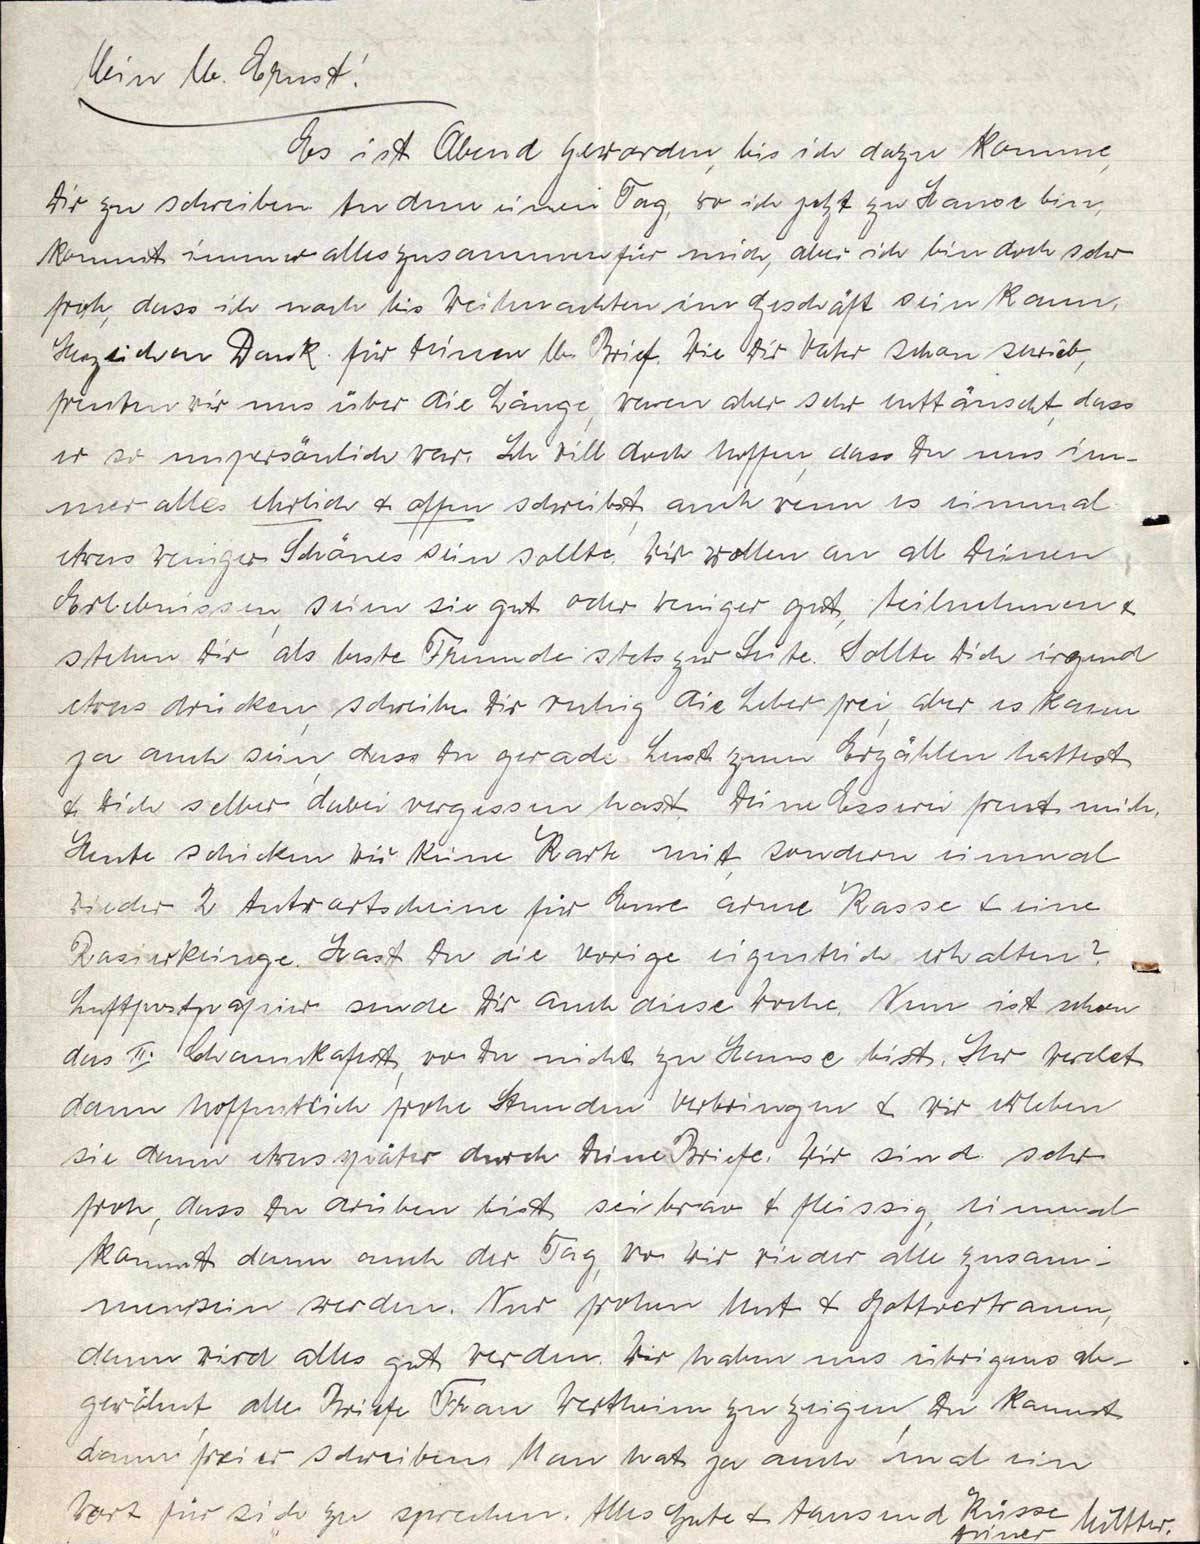 Mein lb. Ernst!
Es ist Abend geworden, bis ich dazu komme,
Dir zu schreiben. An dem einen Tag, wo ich jetzt zu Hause bin,
kommt immer alles zusammen für mich, aber ich bin doch sehr
froh, dass ich noch bis Weihnachten im Geschäft sein kann.
Herzlichen Dank für Deinen lb. Brief. Wie Dir Vater schon schrieb,
freuten wir uns über die Länge, waren aber sehr enttäuscht, dass
er so unpersönlich war. Ich will doch hoffen, dass Du uns im-
mer alles ehrlich & offen schreibst, auch wenn es einmal
etwas weniger Schönes sein sollte. Wir wollen an all Deinen
Erlebnissen, seien sie gut oder weniger gut, teilnehmen &
stehen Dir als beste Freunde stets zur Seite. Sollte Dich irgend
etwas drücken, schreibe Dir ruhig die Leber frei, aber es kann
ja auch sein, dass Du gerade Lust zum Erzählen hattest
& Dich selber dabei vergessen hast. Deine Esserei freut mich.
Heute schicken wir keine Karte mit, sondern einmal
wieder 2 Antwortscheine für Eure arme Kasse & eine
Rasierklinge. Hast Du die vorige eigentlich erhalten?
Luftpostpapier sende Dir auch diese Woche. Nun ist schon
das II. Chanukafest, wo Du nicht zu Hause bist. Ihr werdet
dann hoffentlich frohe Stunden verbringen & wir erleben
sie dann etwas später durch Deine Briefe. Wir sind sehr
froh, dass Du drüben bist, sei brav & fleissig, einmal
kommt dann auch der Tag, wo wir wieder alle zusam-
mensein werden. Nur frohen Mut & Gottvertrauen,
dann wird alles gut werden. Wir haben uns übrigens ab-
gewöhnt alle Briefe Frau Wertheim zu zeigen, Du kannst
dann freier schreiben. Man hat ja auch mal ein
Wort für sich zu sprechen. Alles Gute & tausend Küsse
Deiner Mutter.